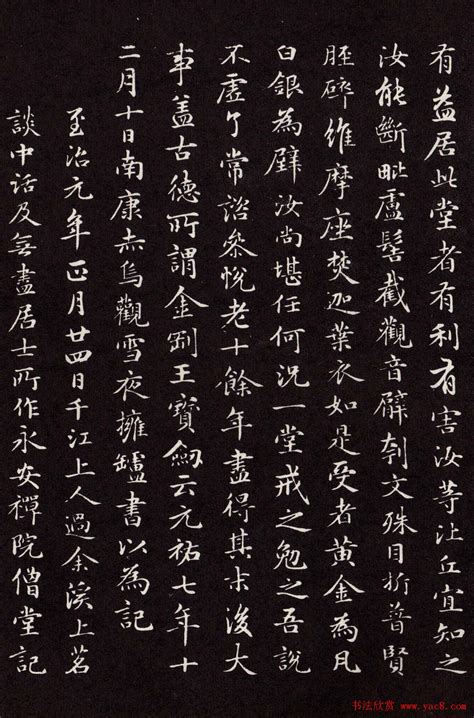 有益居此堂者有利有害汝等比丘宜知之
汝能斷毗盧髻截觀音臂刳文殊目折普賢
脛碎維摩座焚迦葉衣如是受者黃金為瓦
白銀為壁汝尚堪任何況一堂戒之勉之吾說
不虛了常諮參悅老十餘年盡得其末後大
事蓋古德所謂金剛王寶劔云元祐七年十
二月十日南康赤烏觀雪夜擁罏書以為記
至治元年正月廿四日千江上人過余溪上茗
談中話及無盡居士所作永安禪院僧堂記
书法欣赏 www.yac8.com